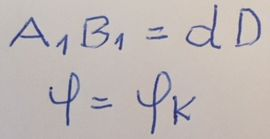 A₁B₁ = dD
φ = φK